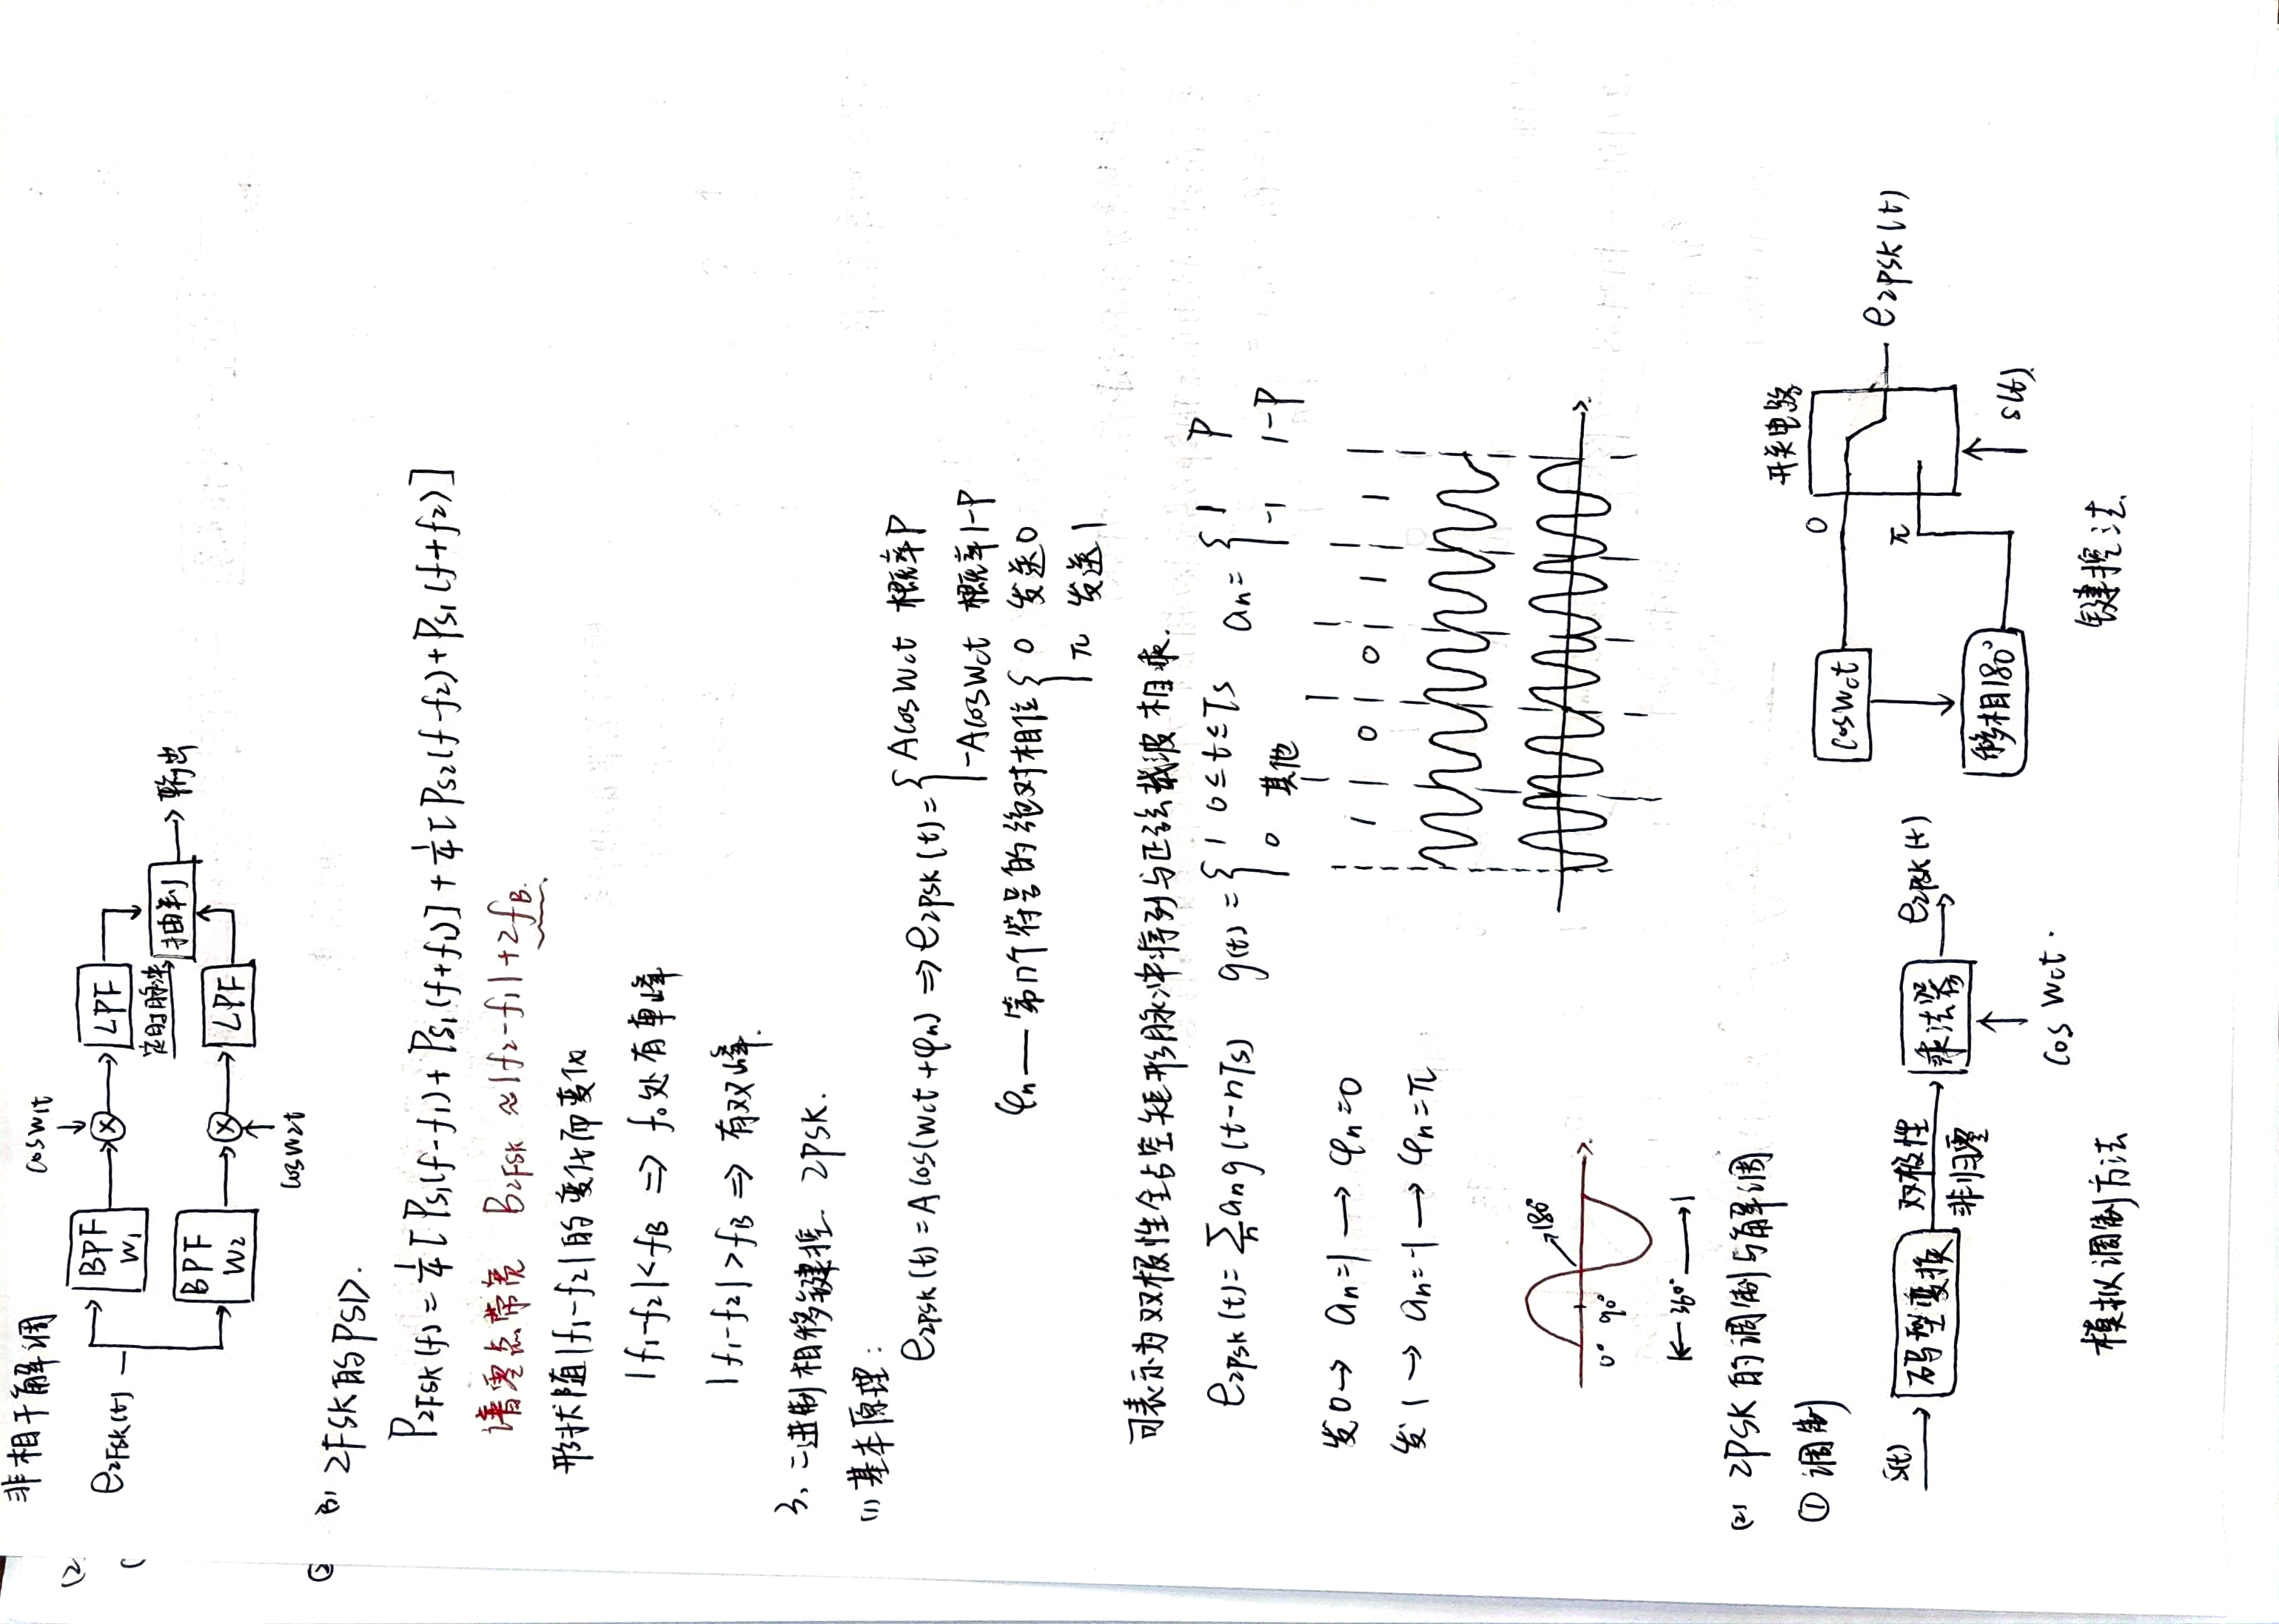 非相干解调
(2
(
cosw₁t
e₂FSK(t)
BPF
w₁
LPF
定时脉冲
抽判
输出
BPF
w₂
LPF
cosw₂t
②
(3) 2FSK的PSD.
P₂FSK(f) = 1/4 [Ps₁(f-f₁) + Ps₁(f+f₁)] + 1/4 [Ps₂(f-f₂) + Ps₁(f+f₂)]
谱零点带宽 B₂FSK ≈ |f₂-f₁| + 2f_B.
形状随|f₁-f₂|的变化而变化
|f₁-f₂| < f_B ⇒ f₀处有单峰
|f₁-f₂| > f_B ⇒ 有双峰.
3、二进制相移键控. 2PSK.
(1) 基本原理:
e₂PSK(t) = A cos(wct + φn) ⇒ e₂PSK(t) = { Acoswct 概率P
-Acoswct 概率1-P
φn — 第n个符号的绝对相位 { 0 发送0
π 发送1
可表示为双极性全占空矩形脉冲序列与正弦载波相乘.
e₂PSK(t) = Σn an g(t-nTs) g(t) = { 1 0≤t≤Ts an = { 1 P
0 其他 -1 1-P
发0 → an=1 → φn=0
发1 → an=-1 → φn=π
1 0 0 1 1
180°
0° 90°
360°
(2) 2PSK的调制与解调
① 调制
s(t)
码型变换
双极性
非归零
乘法器
e₂PSK(t)
cos wct.
模拟调制方法
开关电路
coswct
0
π
e₂PSK(t)
移相180°
s(t)
键控法.